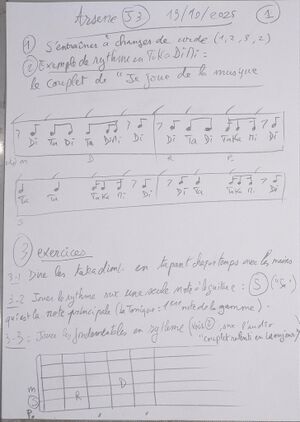 Arsene J3 19/10/2025 1
1 S'entraîner à changer de corde (1, 2, 3, 2)
2 Exemple de rythme en TaKaDiMi :
le couplet de "Je joue de la musique
Di Ta Di Ta DiMi Di Ta Di TaKa Mi Di
D R P.
Ta Ta TaKa Mi Di Di Ta TaKa Mi Di
S
3 exercices
3-1 Dire les takadimi en tapant chaque temps avec les mains
3-2 Jouer le rythme sur une seule note à la guitare : S ("Si")
qui est la note principale (la tonique = 1ère note de la gamme).
3-3 : Jouer les fondamentales en rythme (voir 2) sur l'audio
"couplet ralenti en La majeur")
m
S R D
P.